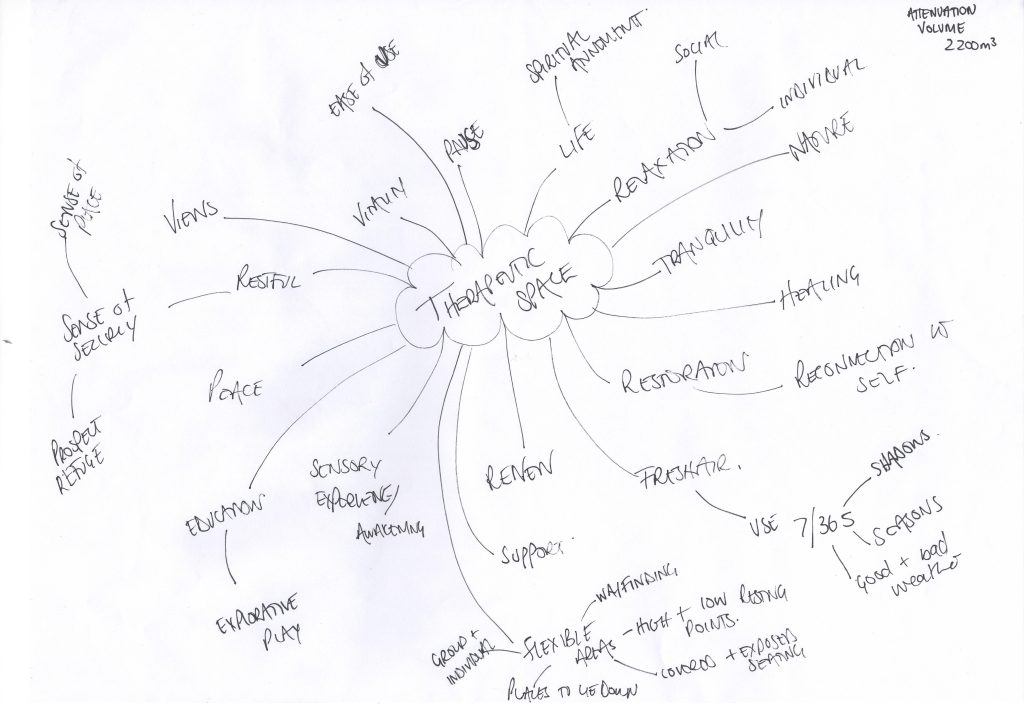 ATTENUATION
VOLUME
2200m³
EASE of USE
SPIRITUAL
SOCIAL
INDIVIDUAL
PAUSE
LIFE
RELAXATION
NATURE
SENSE of
PLACE
VIEWS
VITALITY
TRANQUILITY
RESTFUL
THERAPEUTIC
SPACE
HEALING
SENSE of
SECURITY
PEACE
RESTORATION
RECONNECTION W
SELF.
PROSPECT
REFUGE
SENSORY
EXPERIENCE/
AWAKENING
RENEW
FRESH AIR.
SHADOWS.
EDUCATION
USE 7/365
SEASONS
GOOD + bad
weather
SUPPORT
EXPLORATIVE
PLAY
WAYFINDING
HIGH + LOW RISING
POINTS.
GROUP +
INDIVIDUAL
FLEXIBLE
AREAS
COVERED + EXPOSED
SEATING
PLACES TO LIE DOWN